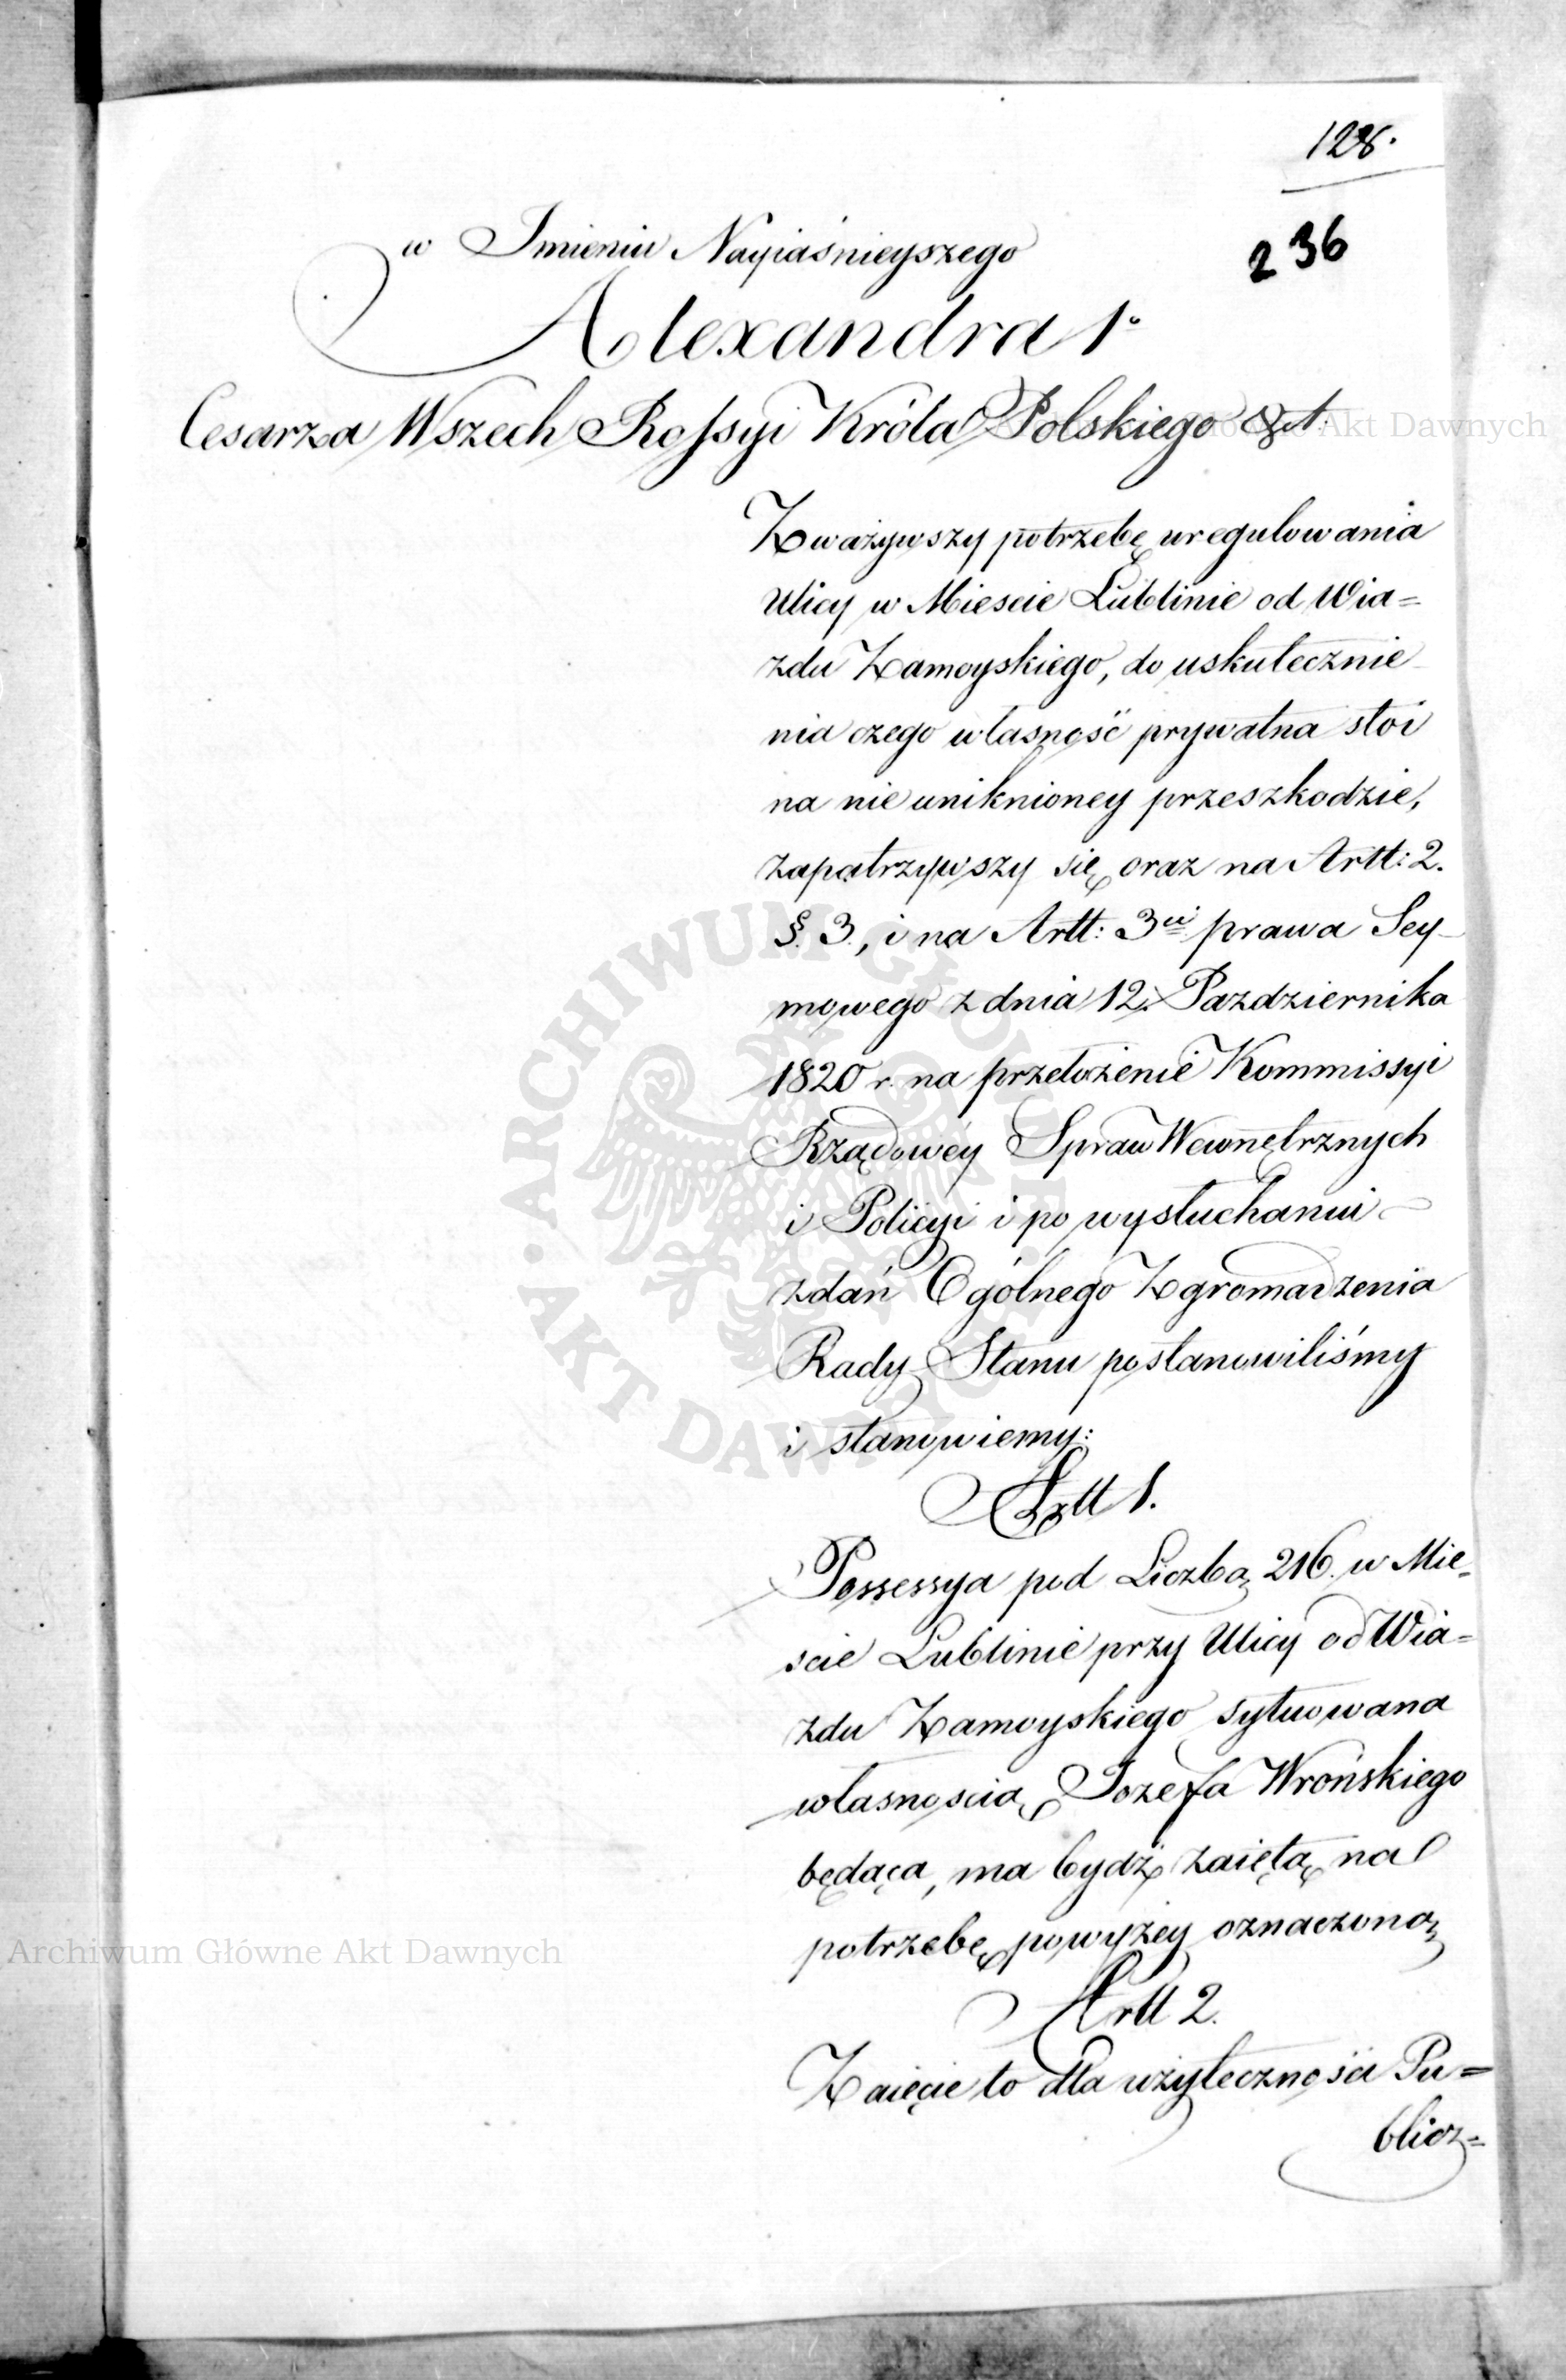 128.
236
w Imieniu Nayiaśnieyszego
Alexandra 1o
Cesarza Wszech Rossyi Króla Polskiego &t.
Zważywszy potrzebę uregulowania
Ulicy w Miescie Lublinie od Wia=
zdu Zamoyskiego, do uskutecznie
nia czego własność prywatna stoi
na nie uniknioney przeszkodzie,
zapatrzywszy się oraz na Artt: 2.
§. 3., i na Artt: 3ci prawa Sey-
mowego z dnia 12. Pazdziernika
1820 r. na przełożenie Kommissyi
Rządowéy Spraw Wewnętrznych
i Policyi i po wysłuchaniu
zdań Ogólnego Zgromadzenia
Rady Stanu postanowiliśmy
i stanowiemy:
Artt 1.
Possessya pod Liczbą 216. w Mie=
scie Lublinie przy Ulicy od Wia=
zdu Zamoyskiego sytuowana
własnoscią Jozefa Wrońskiego
będąca, ma bydź zaiętą na
potrzebę powyżey oznaczoną
Artt 2.
Zaięcie to dla użyteczności Pu=
blicz=
Archiwum Główne Akt Dawnych
Archiwum Główne Akt Dawnych
ARCHIWUM GŁÓWNE · AKT DAWNYCH ·